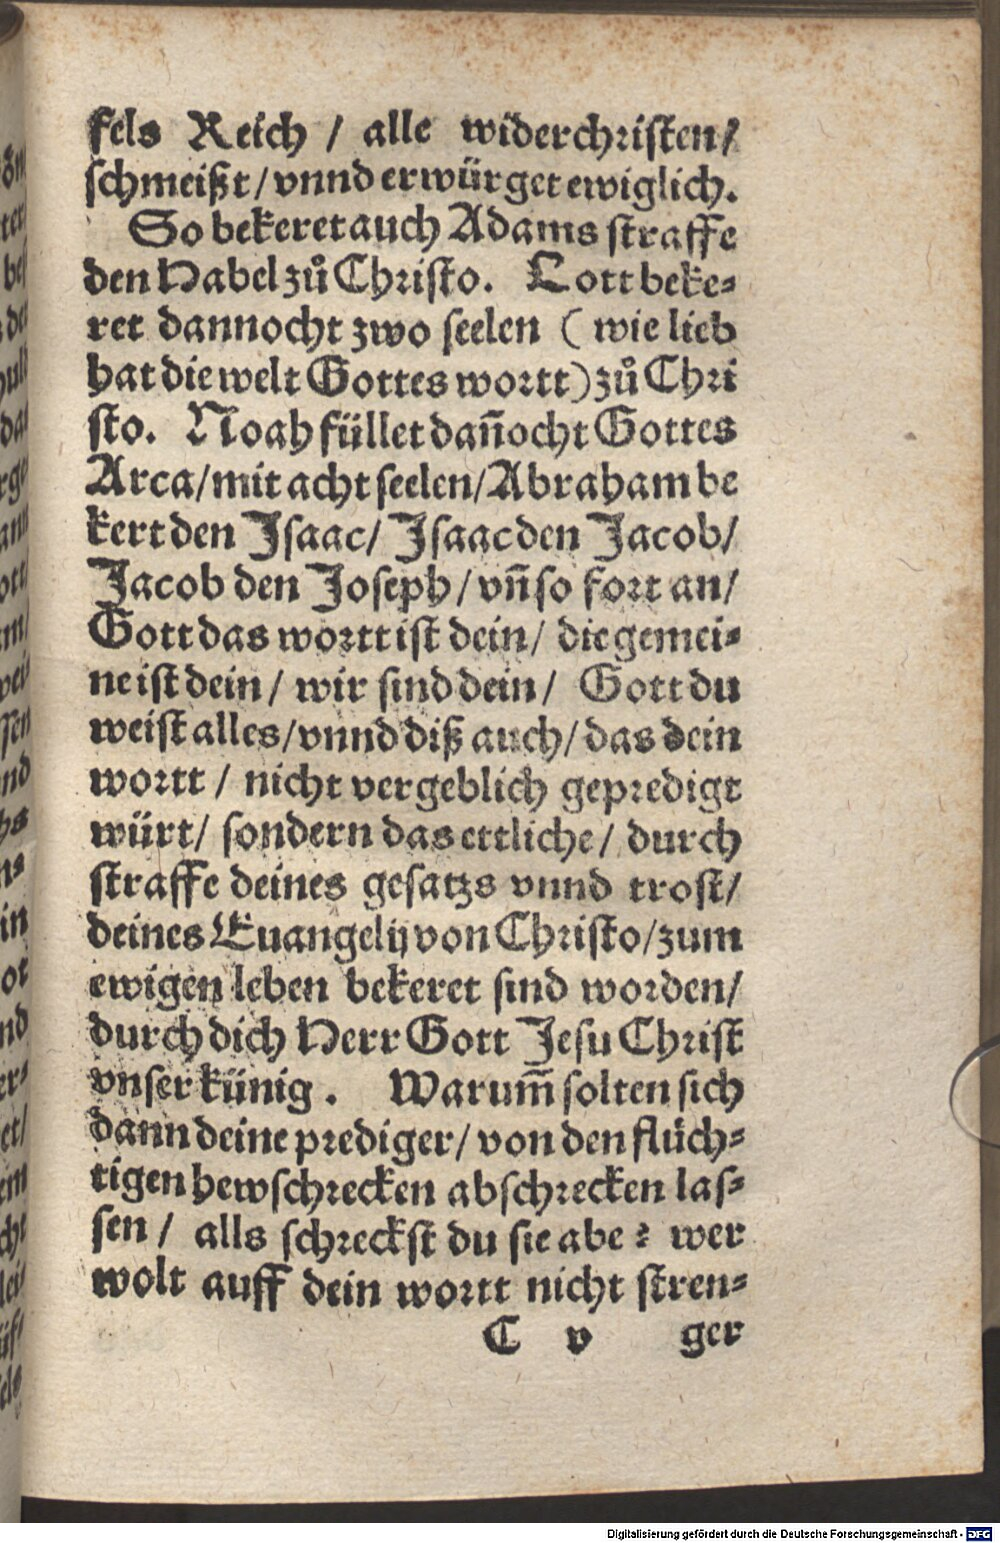 fels Reich / alle widerchristen/
schmeißt/vnnd erwürget ewiglich.
So bekeret auch Adams straffe
den Habel zů Christo. Lott beke-
ret dannocht zwo seelen ( wie lieb
hat die welt Gottes wortt) zů Chri
sto. Noah füllet dañocht Gottes
Arca/mit acht seelen/Abraham be
kert den Isaac/ Isaac den Jacob/
Jacob den Joseph/vñ so fort an/
Gott das wortt ist dein/ die gemei-
ne ist dein/ wir sind dein/ Gott du
weist alles/vnnd diß auch/das dein
wortt / nicht vergeblich gepredigt
würt/ sondern das ettliche/ durch
straffe deines gesatzs vnnd trost/
deines Euangelij von Christo/zum
ewigen leben bekeret sind worden/
durch dich Herr Gott Jesu Christ
vnser künig. Warum̃ solten sich
dann deine prediger/von den flüch-
tigen hewschrecken abschrecken las-
sen/ alls schreckst du sie abe? wer
wolt auff dein wortt nicht stren-
C v ger
Digitalisierung gefördert durch die Deutsche Forschungsgemeinschaft - DFG